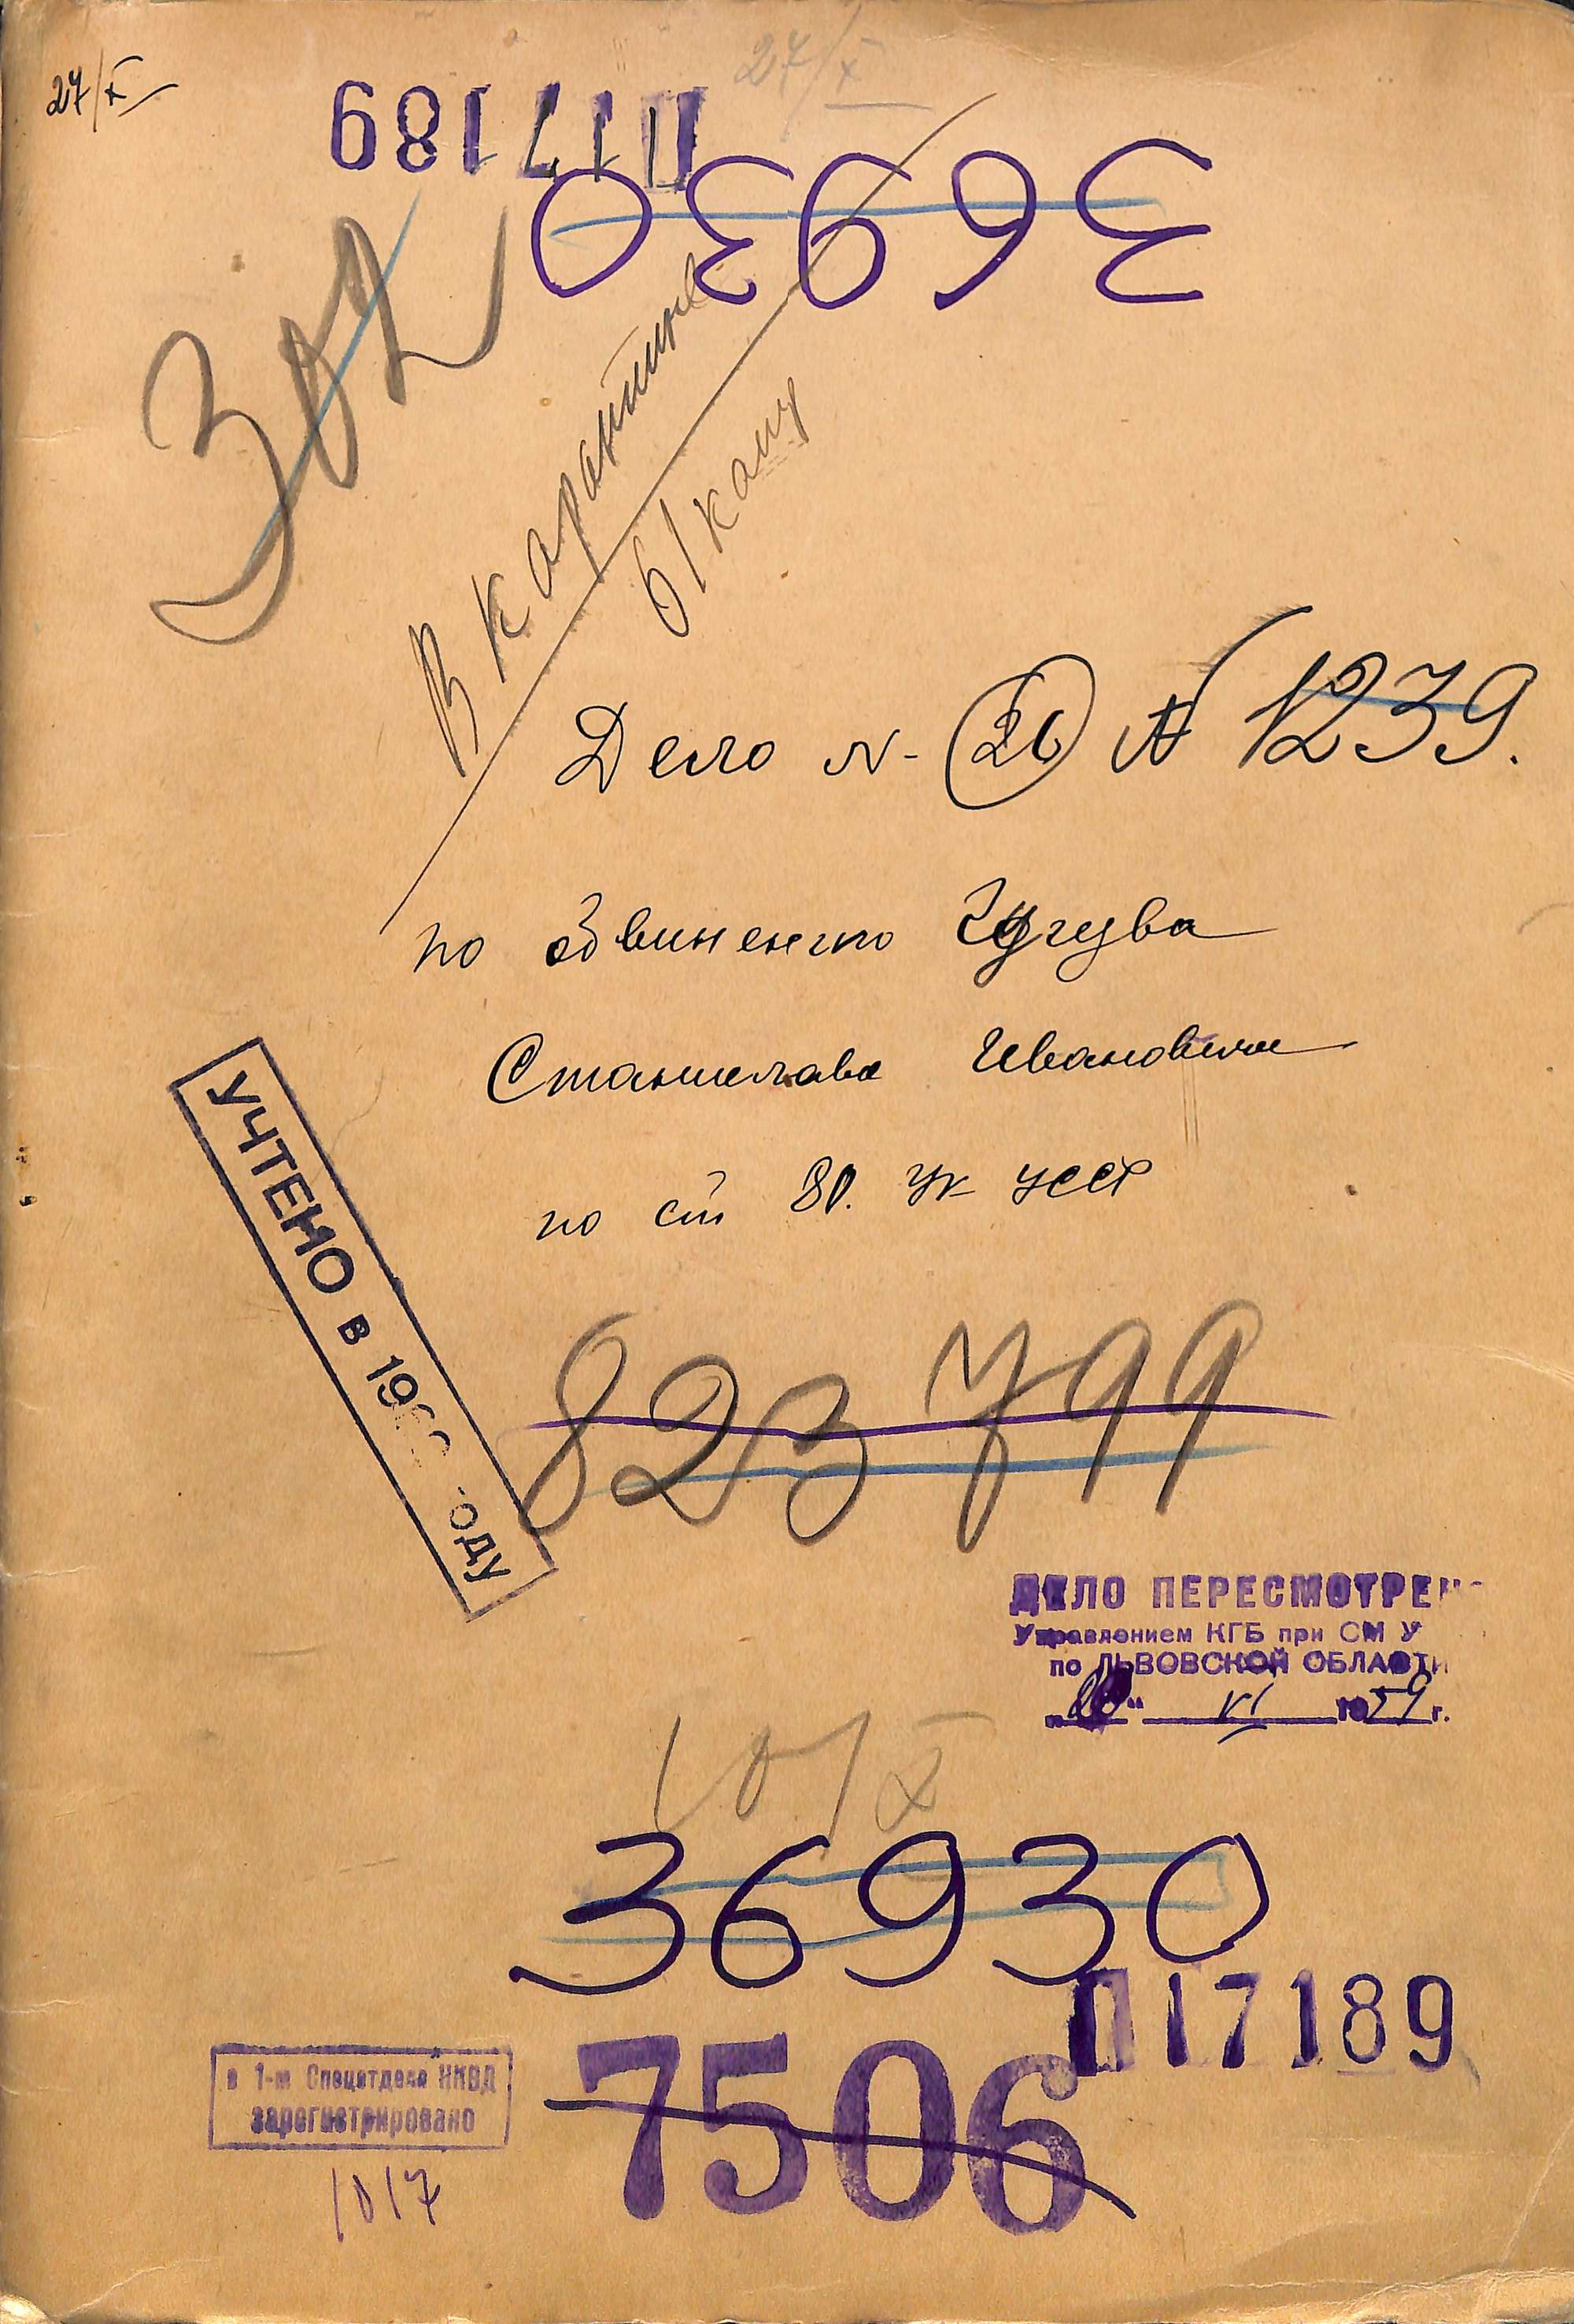 27/X
27/X
П17189
36930
302
В карантине
б/кашу
Дело N- 26 N 1239.
по обвинению
Станислава Ивановича
по ст 80. УК УССР
УЧТЕНО в 19 оду
823799
ДЕЛО ПЕРЕСМОТРЕН
Управлением КГБ при СМ У
по ЛЬВОВСКОЙ ОБЛАСТИ
" VI 1959 г.
10/X
36930
П17189
7506
в 1-м Спецотделе НКВД
зарегистрировано
1017